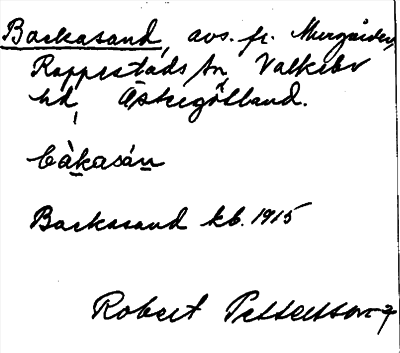 Backasand, avs. fr. Murgården,
Rappestads sn, Valkebo
hd, Östergötland.
bàkasán
Backasand kb. 1915
Robert Pettersson